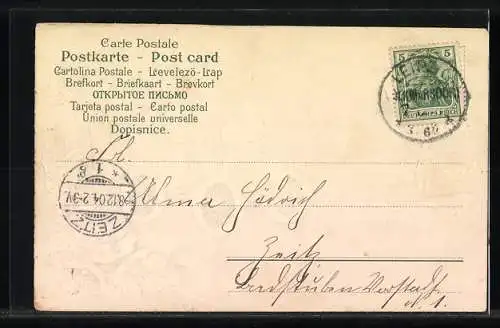 Carte Postale
Postkarte - Post card
Cartolina Postale - Levelező-Lap
Brefkort - Briefkaart - Brevkort
ОТКРЫТОЕ ПИСЬМО
Tarjeta postal - Carto postal
Union postale universelle
Dopisnice.
5 5
Frl.
* 1 *
8.12.04.2-3V.
ZEITZ
Alma
Zeitz
Vorstadt
N. 1.